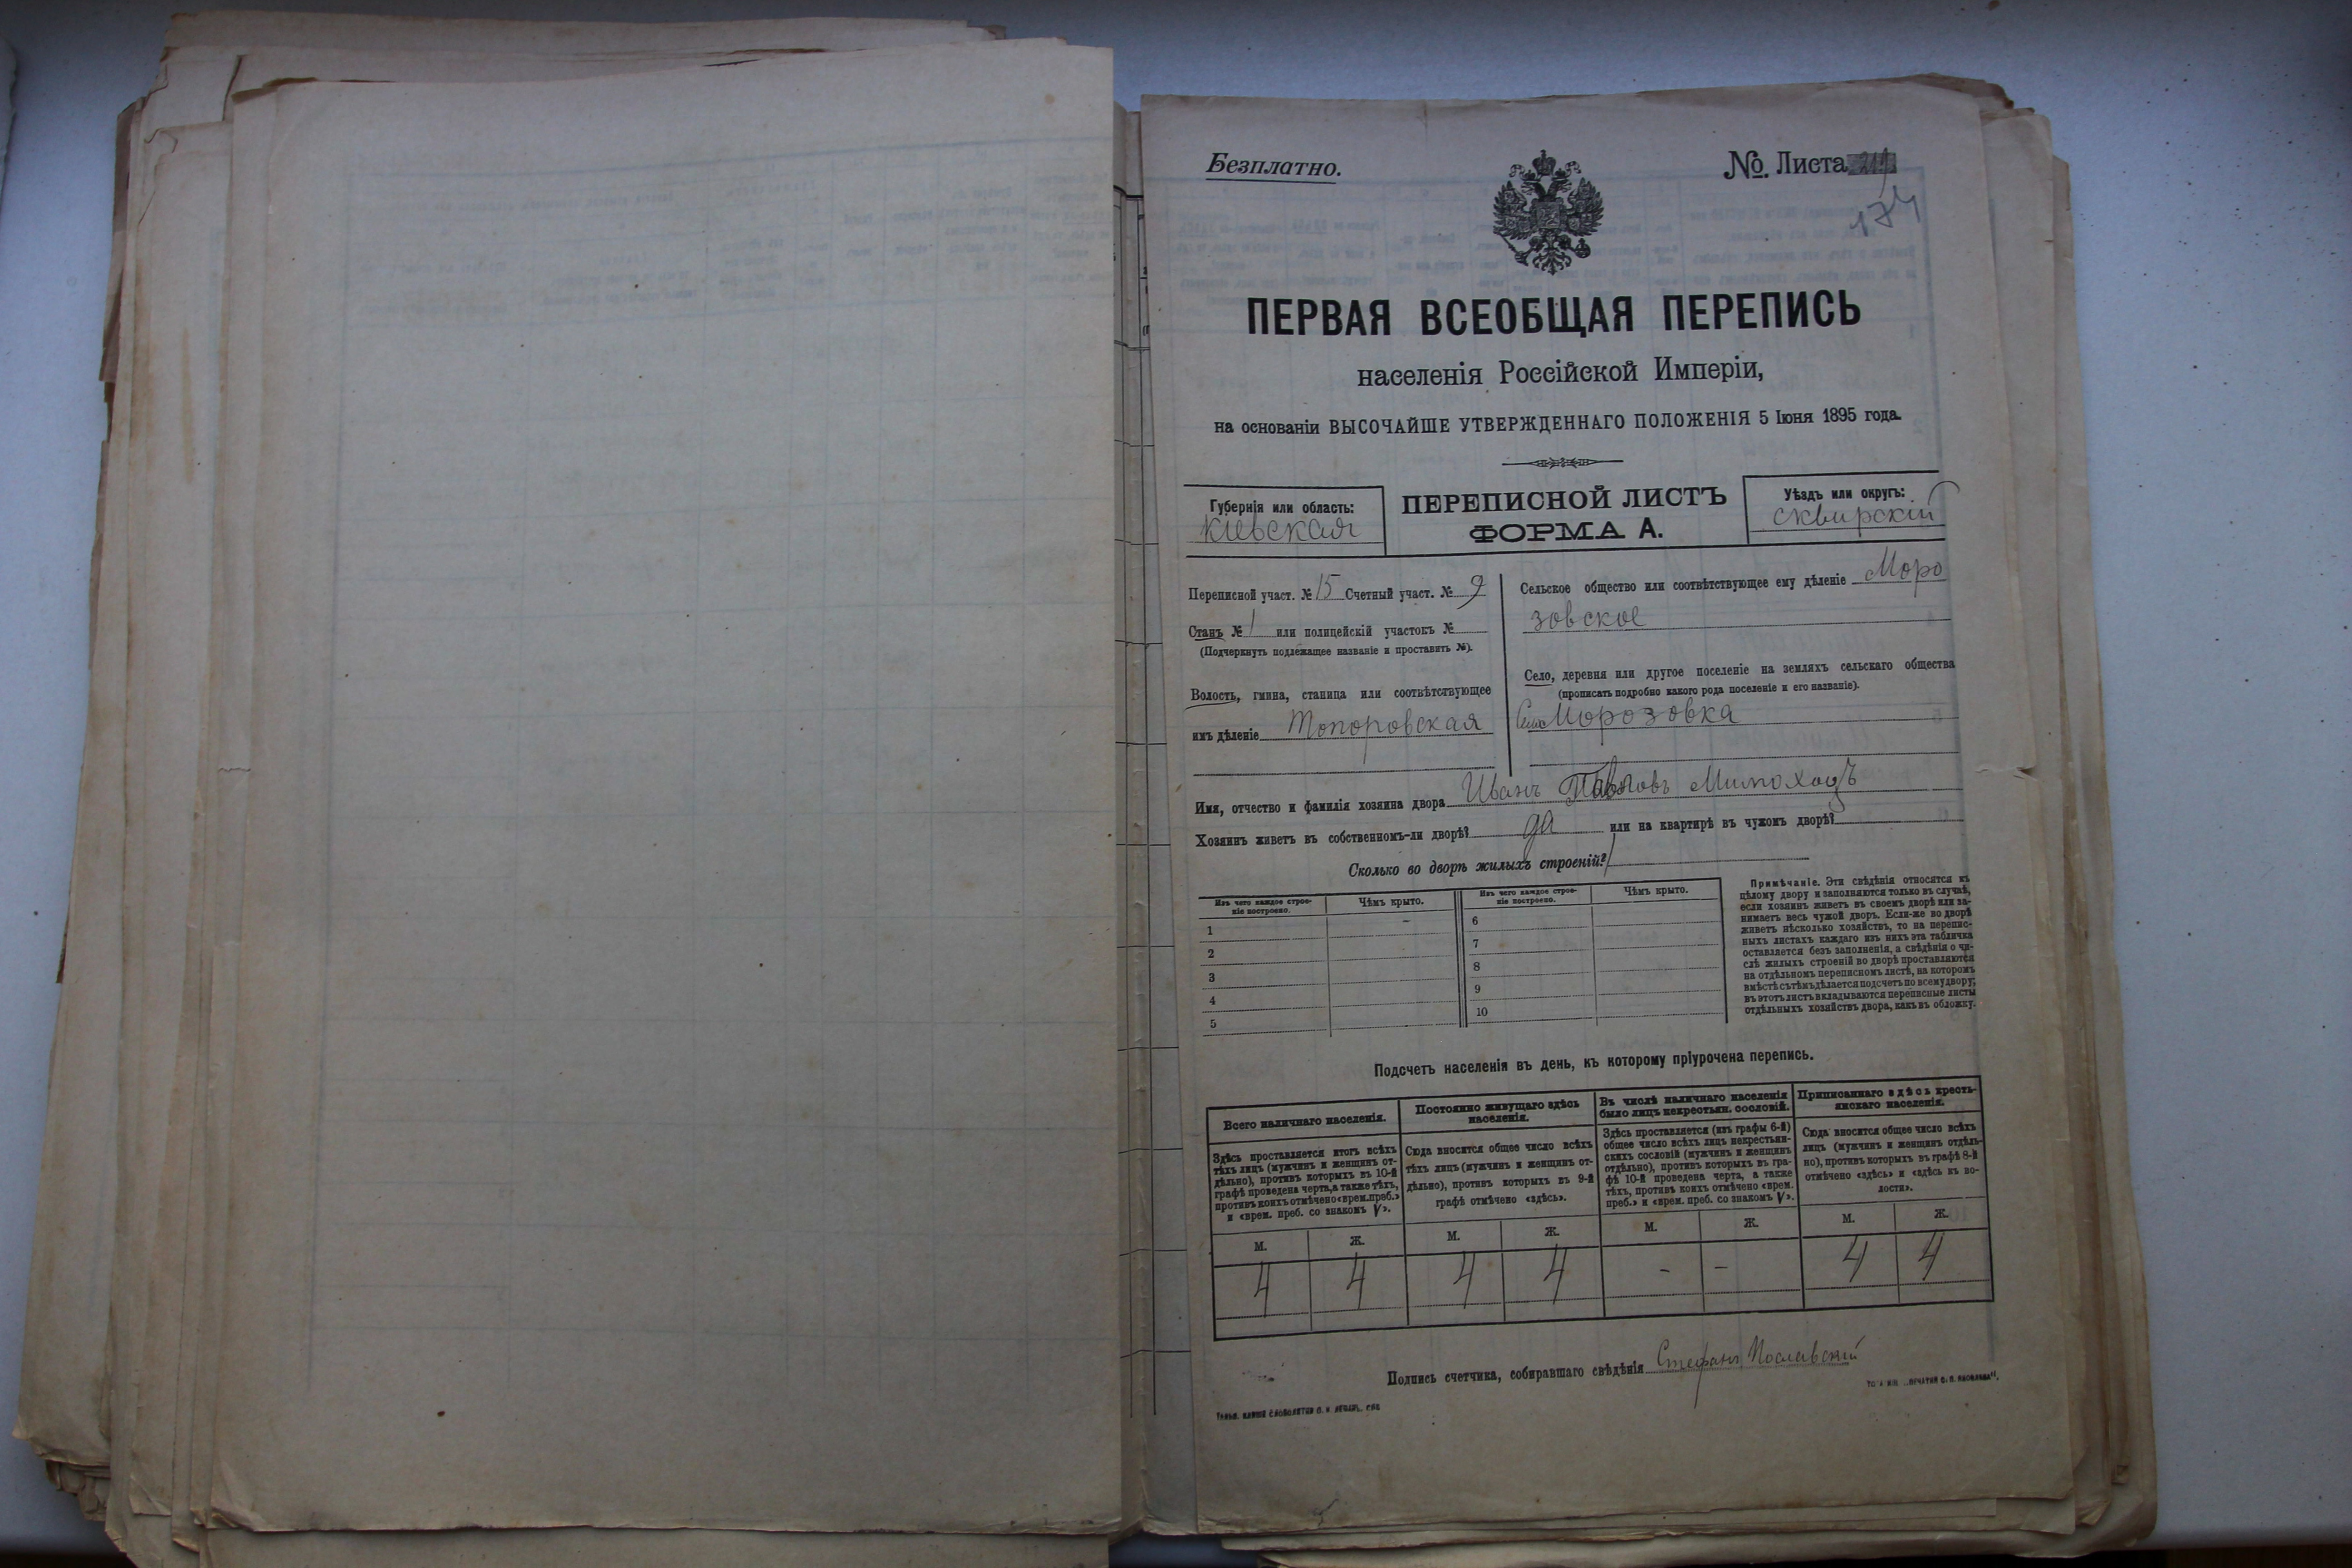 Безплатно.
№. Листа
174
ПЕРВАЯ ВСЕОБЩАЯ ПЕРЕПИСЬ
населенія Россійской Имперіи,
на основаніи ВЫСОЧАЙШЕ УТВЕРЖДЕННАГО ПОЛОЖЕНІЯ 5 Іюня 1895 года.
Губернія или область:
Кіевская
ПЕРЕПИСНОЙ ЛИСТЪ
ФОРМА А.
Уѣздъ или округъ:
Сквирскій
Переписной участ. № 15 Счетный участ. № 9
Станъ № 1 или полицейскій участокъ №
(Подчеркнуть подлежащее названіе и проставить №).
Волость, гмина, станица или соотвѣтствующее
имъ дѣленіе Топоровская
Сельское общество или соотвѣтствующее ему дѣленіе Моро
зовское
Село, деревня или другое поселеніе на земляхъ сельскаго общества
(прописать подробно какого рода поселеніе и его названіе).
Село Морозовка
Имя, отчество и фамилія хозяина двора Иванъ Павловъ Мимоходъ
Хозяинъ живетъ въ собственномъ-ли дворѣ? да или на квартирѣ въ чужомъ дворѣ?
Сколько во дворѣ жилыхъ строеній? 1
Изъ чего каждое строе-
ніе построено.
Чѣмъ крыто.
Изъ чего каждое строе-
ніе построено.
Чѣмъ крыто.
1 – 6
2 7
3 8
4 9
5 10
Примѣчаніе. Эти свѣдѣнія относятся къ
цѣлому двору и заполняются только въ случаѣ,
если хозяинъ живетъ въ своемъ дворѣ или за-
нимаетъ весь чужой дворъ. Если-же во дворѣ
живетъ нѣсколько хозяйствъ, то на перепис-
ныхъ листахъ каждаго изъ нихъ эта табличка
оставляется безъ заполненія, а свѣдѣнія о чи-
слѣ жилыхъ строеній во дворѣ проставляются
на отдѣльномъ переписномъ листѣ, на которомъ
вмѣстѣ съ тѣмъ дѣлается подсчетъ по всему двору;
въ этотъ листъ вкладываются переписные листы
отдѣльныхъ хозяйствъ двора, какъ въ обложку.
Подсчетъ населенія въ день, къ которому пріурочена перепись.
Всего наличнаго населенія.
Здѣсь проставляется итогъ всѣхъ
тѣхъ лицъ (мужчинъ и женщинъ от-
дѣльно), противъ которыхъ въ 10-й
графѣ проведена черта, а также тѣхъ,
противъ коихъ отмѣчено «врем. преб.»
и «врем. преб. со знакомъ V».
Постоянно живущаго здѣсь
населенія.
Сюда вносится общее число всѣхъ
тѣхъ лицъ (мужчинъ и женщинъ от-
дѣльно), противъ которыхъ въ 9-й
графѣ отмѣчено «здѣсь».
Въ числѣ наличнаго населенія
было лицъ некрестьян. сословій.
Здѣсь проставляется (изъ графы 6-й)
общее число всѣхъ лицъ некрестьян-
скихъ сословій (мужчинъ и женщинъ
отдѣльно), противъ которыхъ въ гра-
фѣ 10-й проведена черта, а также
тѣхъ, противъ коихъ отмѣчено «врем.
преб.» и «врем. преб. со знакомъ V».
Приписаннаго здѣсь кресть-
янскаго населенія.
Сюда вносится общее число всѣхъ
лицъ (мужчинъ и женщинъ отдѣль-
но), противъ которыхъ въ графѣ 8-й
отмѣчено «здѣсь» и «здѣсь въ во-
лости».
М. Ж. М. Ж. М. Ж. М. Ж.
4 4 4 4 – – 4 4
Подпись счетчика, собиравшаго свѣдѣнія Стефанъ